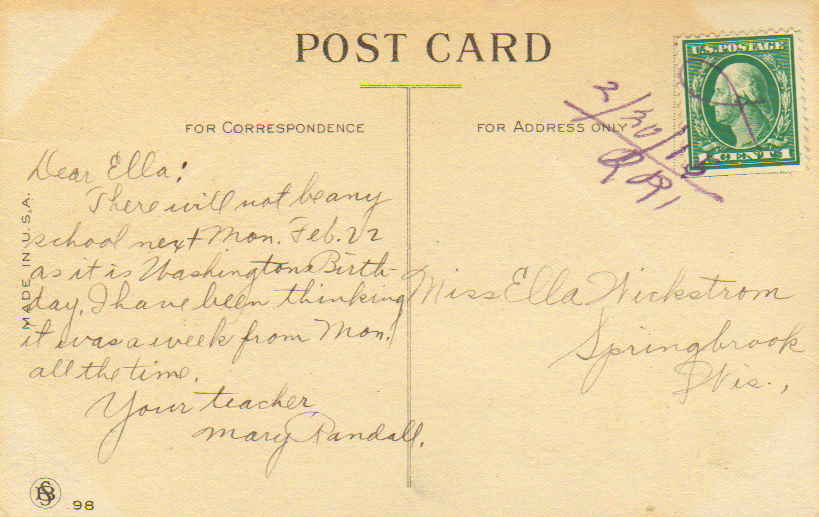 POST CARD
U.S. POSTAGE
1 CENT 1
FOR CORRESPONDENCE
FOR ADDRESS ONLY
Dear Ella:
There will not be any
school next Mon. Feb. 22
as it is Washingtons Birth-
day. I have been thinking
it was a week from Mon.
all the time.
Your teacher
Mary Randall.
Miss Ella Wickstrom
Springbrook
Wis.,
MADE IN U.S.A.
98